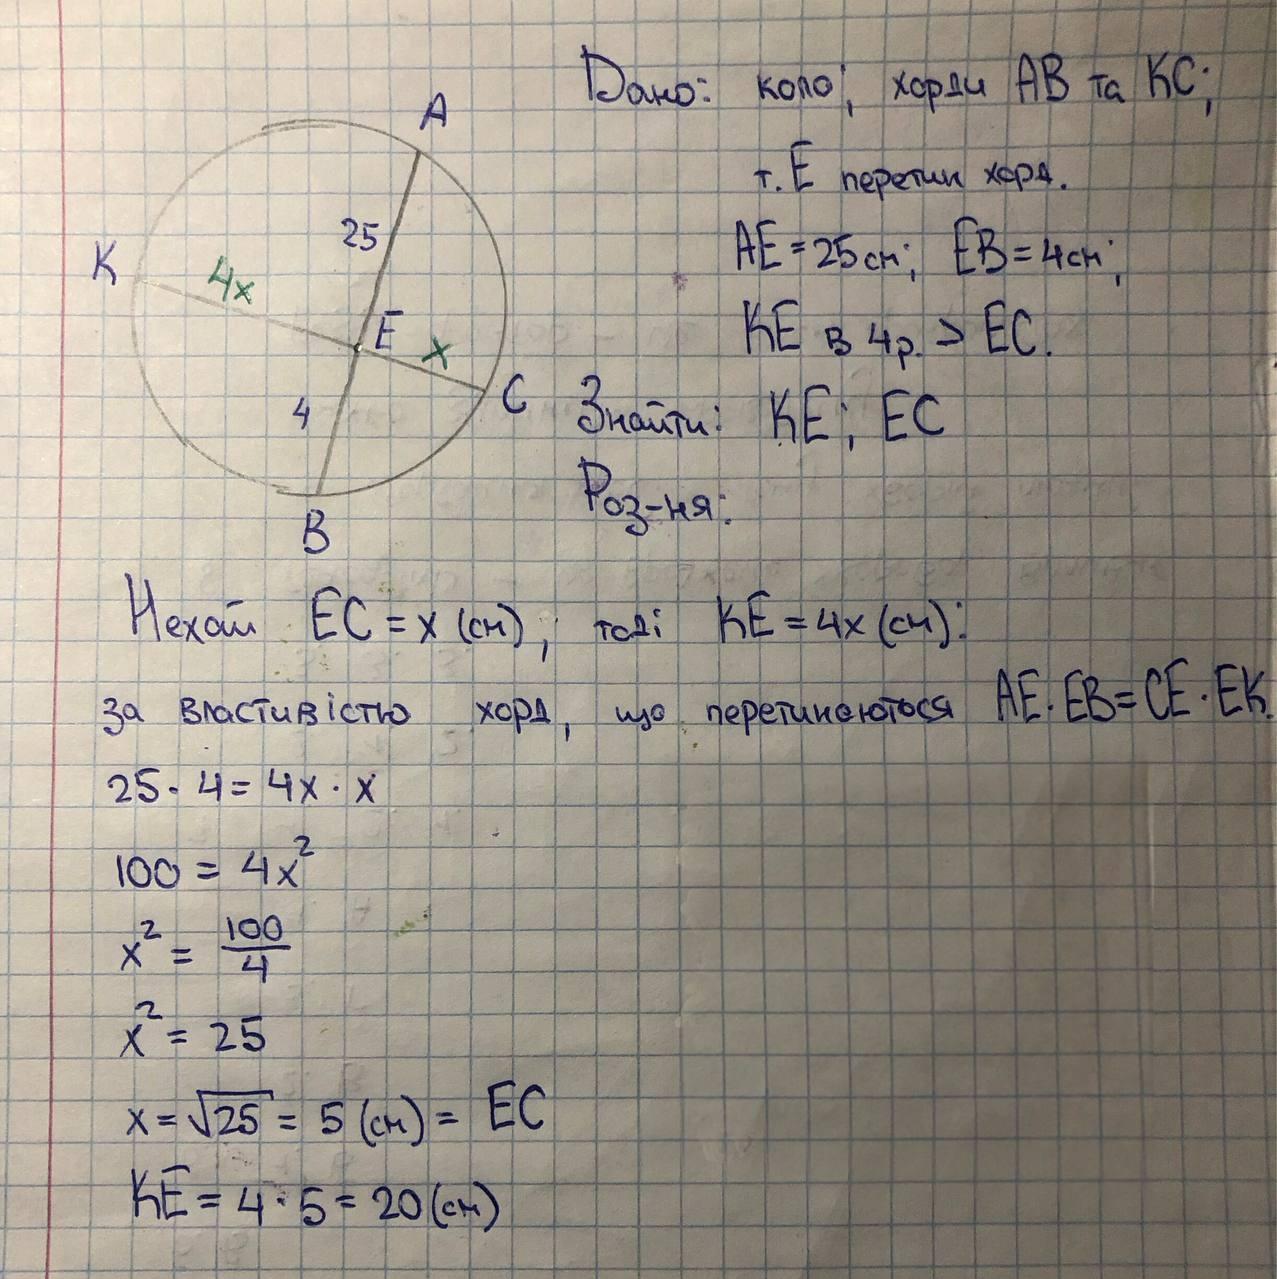 Дано: коло; хорди AB та KC;
т. E перетин хорд.
AE = 25 см; EB = 4 см;
KE в 4 р. > EC.
Знайти: KE; EC
Роз-ня:
A
25
K
4x
E
x
C
4
B
Нехай EC = x (см), тоді KE = 4x (см):
за властивістю хорд, що перетинаються AE · EB = CE · EK.
25 · 4 = 4x · x
100 = 4x²
x² = 100/4
x² = 25
x = √25 = 5 (см) = EC
KE = 4 · 5 = 20 (см)